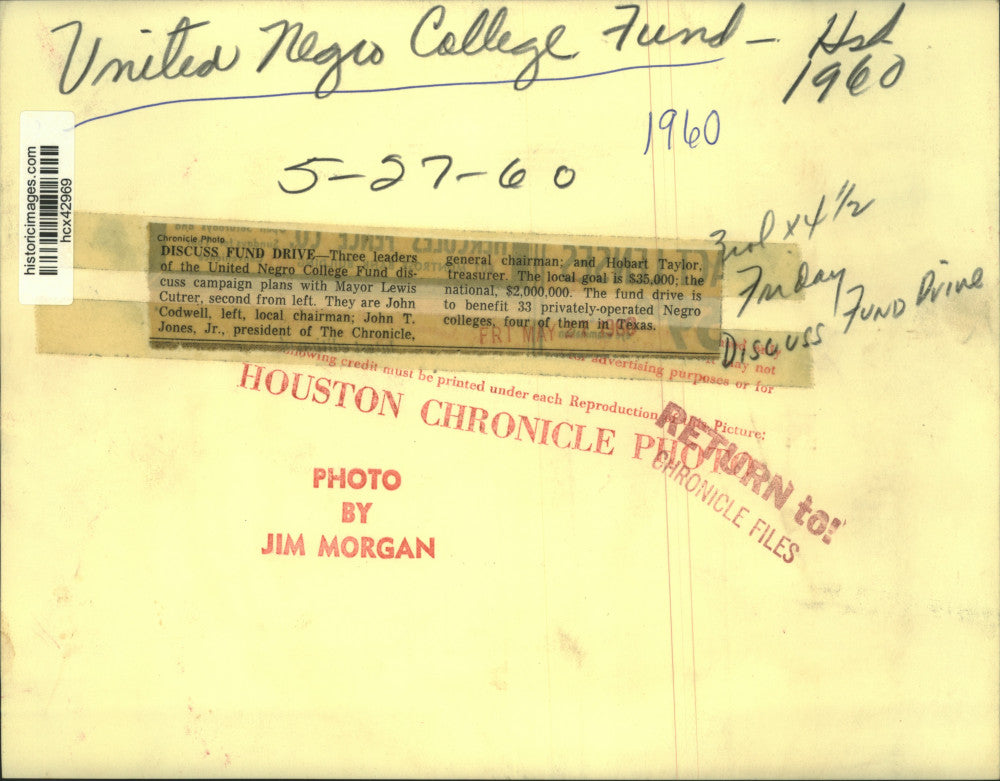 United Negro College Fund - Hst
1960
1960
5-27-60
historicimages.com
hcx42969
Chronicle Photo
DISCUSS FUND DRIVE—Three leaders
of the United Negro College Fund dis-
cuss campaign plans with Mayor Lewis
Cutrer, second from left. They are John
Codwell, left, local chairman; John T.
Jones, Jr., president of The Chronicle,
general chairman; and Hobart Taylor,
treasurer. The local goal is $35,000; the
national, $2,000,000. The fund drive is
to benefit 33 privately-operated Negro
colleges, four of them in Texas.
FRI MAY
3 col x 4 1/2
Friday
Discuss Fund Drive
may not
advertising purposes or for
credit must be printed under each Reproduction Picture:
HOUSTON CHRONICLE PHOTO
RETURN to:
CHRONICLE FILES
PHOTO
BY
JIM MORGAN